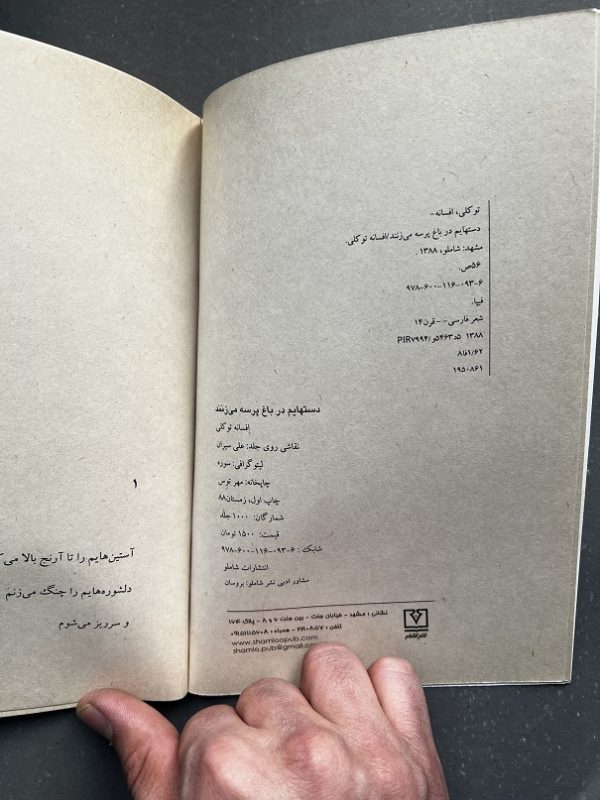 توکلی، افسانه-
دستهایم در باغ پرسه می‌زنند/افسانه توکلی.
مشهد: شاملو، ۱۳۸۸.
۵۶ص.
۹۷۸-۶۰۰-۱۱۶-۰۹۳-۶
فیپا.
شعر فارسی--قرن۱۴
PIR۷۹۹۴/و۵۴۶۳د۵ ۱۳۸۸
۸فا۱/۶۲
۱۹۵۰۸۶۱
دستهایم در باغ پرسه می‌زنند
افسانه توکلی
نقاشی روی جلد: علی سیران
لیتوگرافی: سوره
چاپخانه: مهر توس
چاپ اول، زمستان۸۸
شمارگان: ۱۰۰۰ جلد
قیمت: ۱۵۰۰ تومان
شابک: ۶-۰۹۳-۱۱۶-۶۰۰-۹۷۸
انتشارات شاملو
مشاور ادبی نشر شاملو: بروسان
نشانی: مشهد - خیابان جنت - بین جنت ۶ و ۸ - پلاک ۱۷۴
تلفن: ۲۲۰۸۵۷ - همراه: ۰۹۱۵۱۱۵۷۰۰۸
www.shamloopub.com
shamlo.pub@gmail.com
۱
آستین‌هایم را تا آرنج بالا
دلشوره‌هایم را چنگ می‌زنم
و سرریز می‌شوم